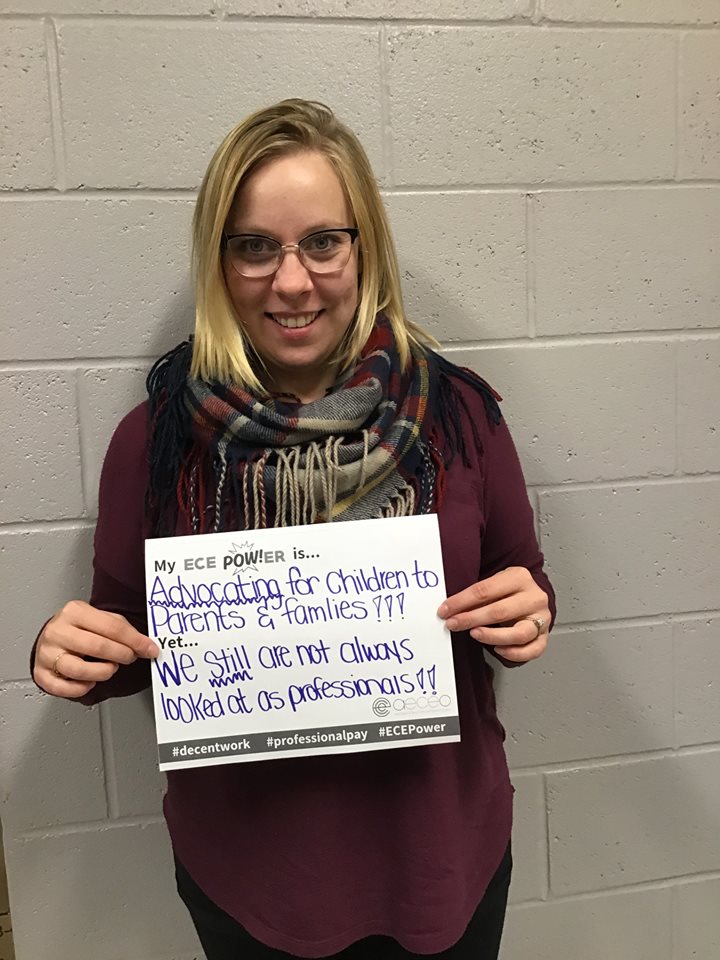 My ECE POW!ER is...
Advocating for Children to
Parents & famlies !!!
Yet...
We still are not always
looked at as professionals!!
aeceo
#decentwork #professionalpay #ECEPower